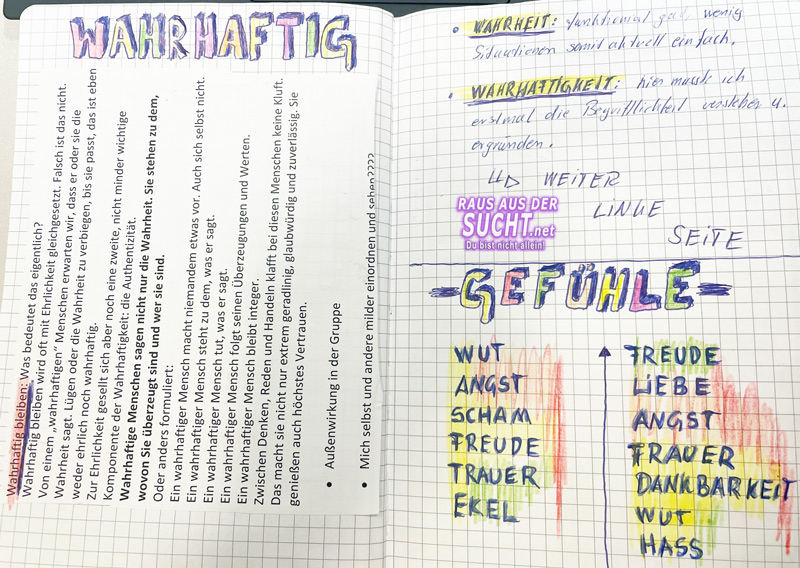 WAHRHAFTIG
Wahrhaftig bleiben: Was bedeutet das eigentlich?
Wahrhaftig bleiben wird oft mit Ehrlichkeit gleichgesetzt. Falsch ist das nicht.
Von einem „wahrhaftigen“ Menschen erwarten wir, dass er oder sie die
Wahrheit sagt. Lügen oder die Wahrheit zu verbiegen, bis sie passt, das ist eben
weder ehrlich noch wahrhaftig.
Zur Ehrlichkeit gesellt sich aber noch eine zweite, nicht minder wichtige
Komponente der Wahrhaftigkeit: die Authentizität.
Wahrhaftige Menschen sagen nicht nur die Wahrheit. Sie stehen zu dem,
wovon Sie überzeugt sind und wer sie sind.
Oder anders formuliert:
Ein wahrhaftiger Mensch macht niemandem etwas vor. Auch sich selbst nicht.
Ein wahrhaftiger Mensch steht zu dem, was er sagt.
Ein wahrhaftiger Mensch tut, was er sagt.
Ein wahrhaftiger Mensch folgt seinen Überzeugungen und Werten.
Ein wahrhaftiger Mensch bleibt integer.
Zwischen Denken, Reden und Handeln klafft bei diesen Menschen keine Kluft.
Das macht sie nicht nur extrem geradlinig, glaubwürdig und zuverlässig. Sie
genießen auch höchstes Vertrauen.
• Außenwirkung in der Gruppe
• Mich selbst und andere milder einordnen und sehen????
• WAHRHEIT: funktioniert gut, wenig
Situationen somit aktuell einfach.
• WAHRHAFTIGKEIT: hier musste ich
erstmal die Begrifflichkeit verstehen u.
ergründen.
WEITER
LINKE
SEITE
RAUS AUS DER
SUCHT.net
Du bist nicht allein!
-GEFÜHLE-
WUT
ANGST
SCHAM
FREUDE
TRAUER
EKEL
FREUDE
LIEBE
ANGST
TRAUER
DANKBARKEIT
WUT
HASS